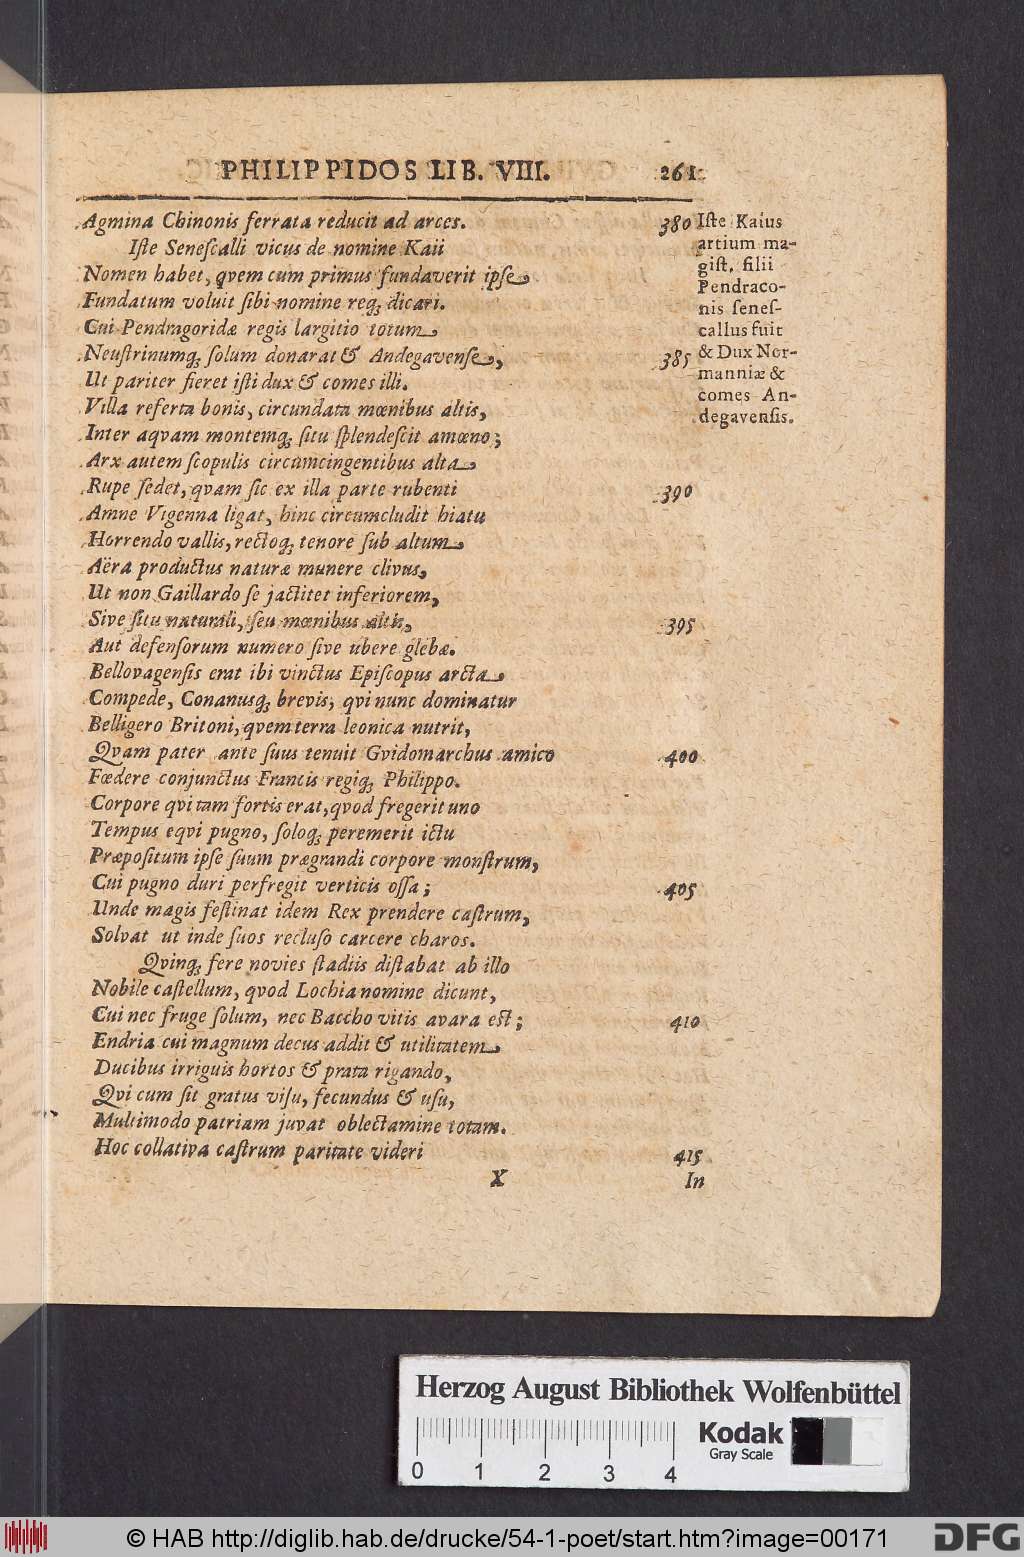 PHILIPPIDOS LIB. VIII. 261
Agmina Chinonis ferrata reducit ad arces. 380
Iſte Seneſcalli vicus de nomine Kaii
Nomen habet, qvem cum primus fundaverit ipſe
Fundatum voluit ſibi nomine reqꝫ dicari.
Cui Pendragoridæ regis largitio totum
Neuſtrinumqꝫ ſolum donarat & Andegavenſe, 385
Ut pariter fieret iſti dux & comes illi.
Villa referta bonis, circundata mœnibus altis,
Inter aqvam montemqꝫ ſitu ſplendeſcit amœno;
Arx autem ſcopulis circumcingentibus alta
Rupe ſedet, qvam ſic ex illa parte rubenti 390
Amne Vigenna ligat, hinc circumcludit hiatu
Horrendo vallis, rectoqꝫ tenore ſub altum
Aëra productus naturæ munere clivus,
Ut non Gaillardo ſe jactitet inferiorem,
Sive ſitu naturali, ſeu mœnibus altis, 395
Aut defenſorum numero ſive ubere glebæ.
Bellovagenſis erat ibi vinctus Epiſcopus arcta
Compede, Conanusqꝫ brevis, qvi nunc dominatur
Belligero Britoni, qvem terra leonica nutrit,
Qvam pater ante ſuus tenuit Gvidomarchus amico 400
Fœdere conjunctus Francis regiqꝫ Philippo.
Corpore qvi tam fortis erat, qvod fregerit uno
Tempus eqvi pugno, ſoloqꝫ peremerit ictu
Præpoſitum ipſe ſuum prægrandi corpore monſtrum,
Cui pugno duri perfregit verticis oſſa; 405
Unde magis feſtinat idem Rex prendere caſtrum,
Solvat ut inde ſuos recluſo carcere charos.
Qvinqꝫ fere novies ſtadiis diſtabat ab illo
Nobile caſtellum, qvod Lochia nomine dicunt,
Cui nec fruge ſolum, nec Baccho vitis avara est; 410
Endria cui magnum decus addit & utilitatem
Ducibus irriguis hortos & prata rigando,
Qvi cum ſit gratus viſu, fecundus & uſu,
Multimodo patriam juvat oblectamine totam.
Hoc collativa caſtrum paritate videri 415
X In
Iſte Kaius
artium ma-
giſt. filii
Pendraco-
nis ſeneſ-
callus fuit
& Dux Nor-
manniæ &
comes An-
degavenſis.
Herzog August Bibliothek Wolfenbüttel
Kodak
Gray Scale
0 1 2 3 4
© HAB http://diglib.hab.de/drucke/54-1-poet/start.htm?image=00171
DFG